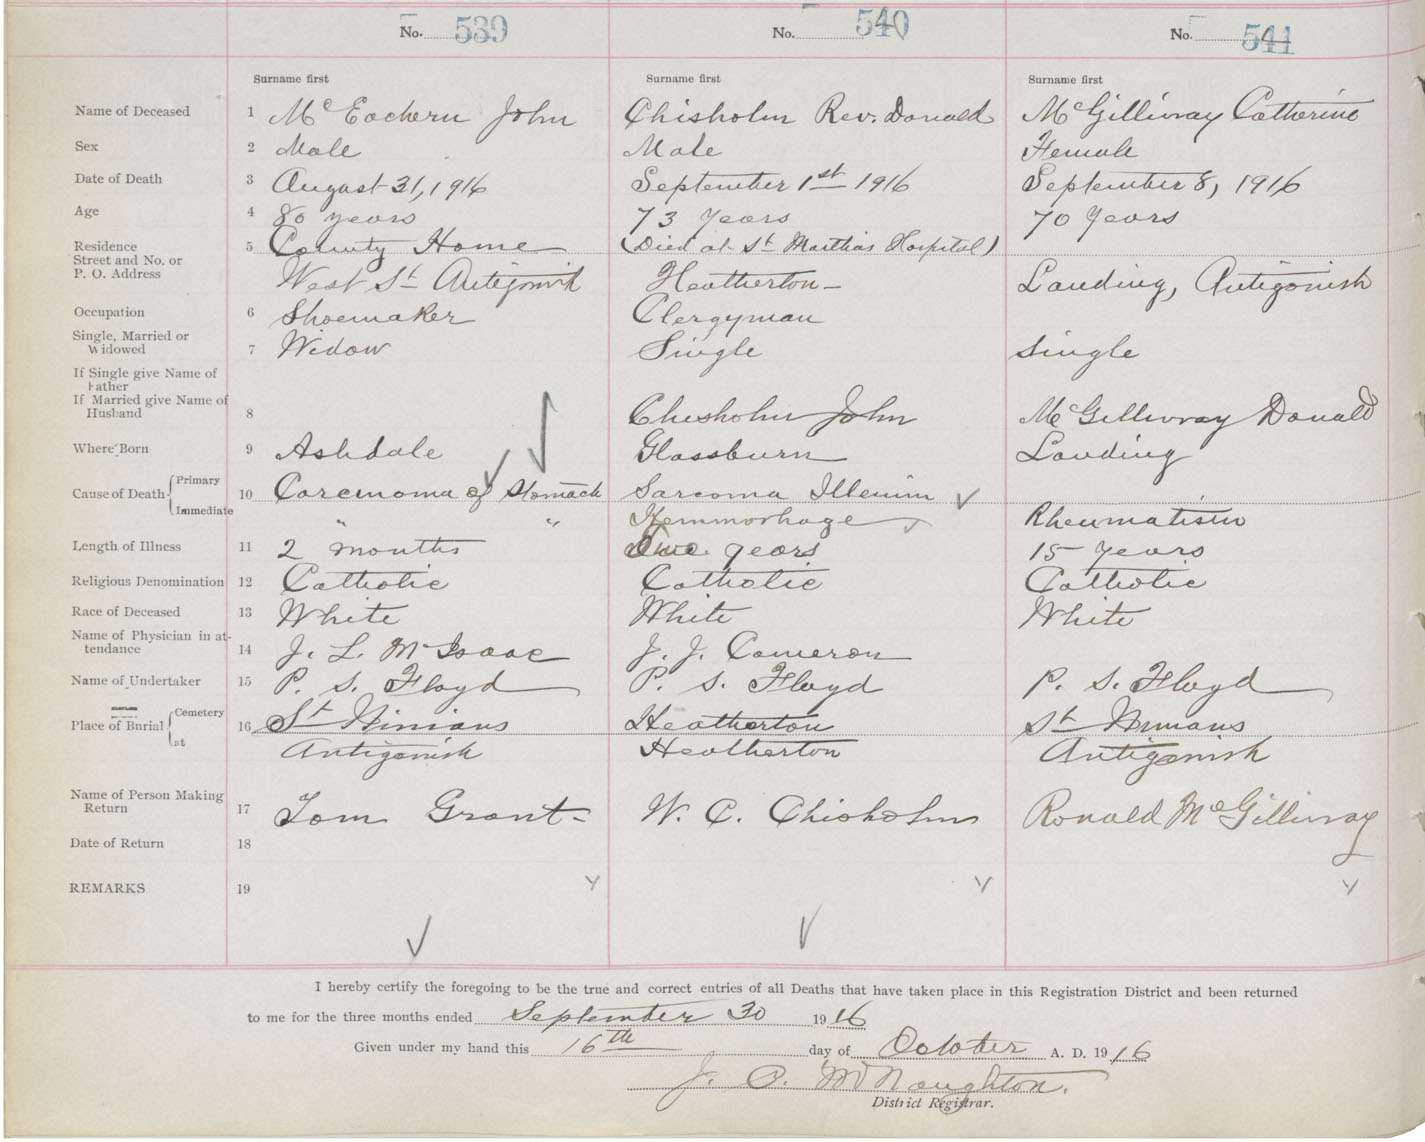 No. 539 No. 540 No. 541
Surname first Surname first Surname first
Name of Deceased 1 McEachern John Chisholm Rev. Donald McGillivray Catherine
Sex 2 Male Male Female
Date of Death 3 August 31, 1916 September 1st 1916 September 8, 1916
Age 4 80 years 73 years 70 years
Residence 5 County Home (Died at St Marthas Hospital)
Street and No. or
P. O. Address West St Antigonish Heatherton Landing, Antigonish
Occupation 6 Shoemaker Clergyman
Single, Married or
Widowed 7 Widow Single Single
If Single give Name of
Father
If Married give Name of
Husband 8 Chisholm John McGillivray Donald
Where Born 9 Ashdale Glassburn Landing
Cause of Death Primary 10 Carcinoma of Stomach Sarcoma Illenim
Immediate " " Hemmorhage Rheumatism
Length of Illness 11 2 months years 15 years
Religious Denomination 12 Catholic Catholic Catholic
Race of Deceased 13 White White White
Name of Physician in at-
tendance 14 J. L. McIsaac J. J. Cameron
Name of Undertaker 15 P. S. Floyd P. S. Floyd P. S. Floyd
Place of Burial Cemetery 16 St Ninians Heatherton St Ninians
at Antigonish Heatherton Antigonish
Name of Person Making
Return 17 Tom Grant W. C. Chisholm Ronald McGillivray
Date of Return 18
REMARKS 19
I hereby certify the foregoing to be the true and correct entries of all Deaths that have taken place in this Registration District and been returned
to me for the three months ended September 30 1916
Given under my hand this 16th day of October A. D. 1916
J. McNaughton.
District Registrar.